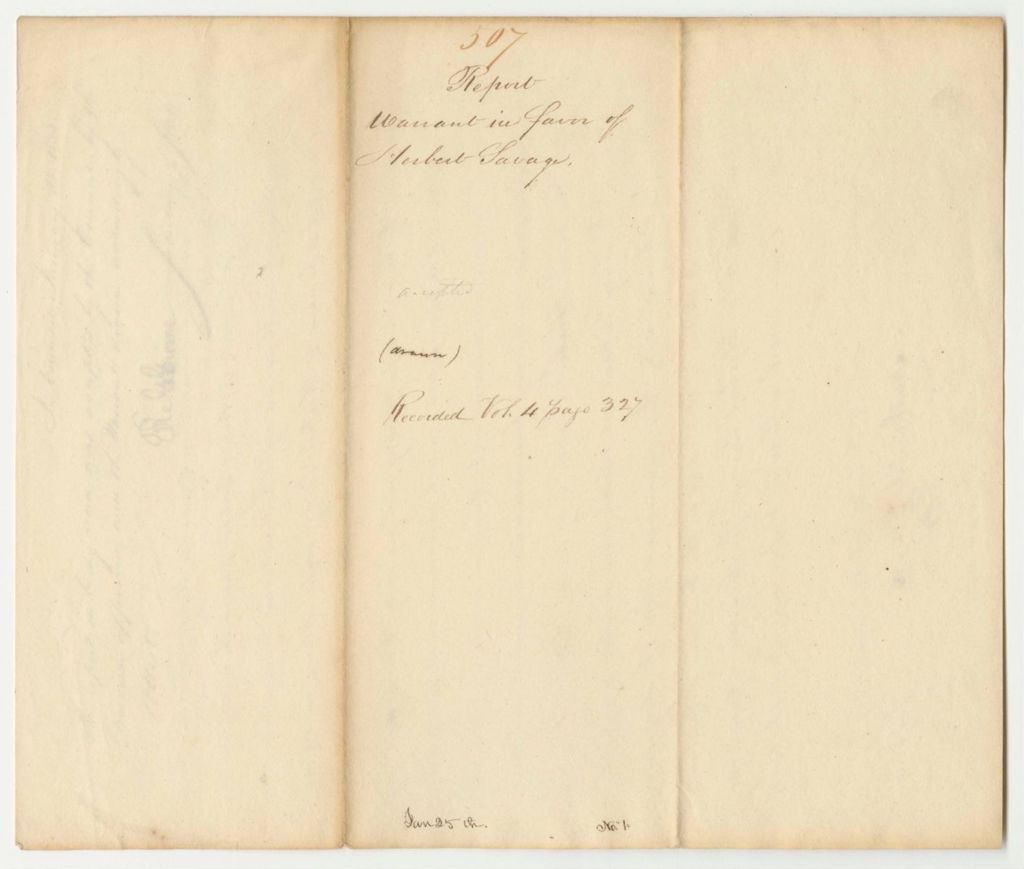 507
Report
Warrant in favor of
Herbert Savage.
accepted
(drawn)
Recorded Vol. 4 page 327
Jan 25th.
No. 1.